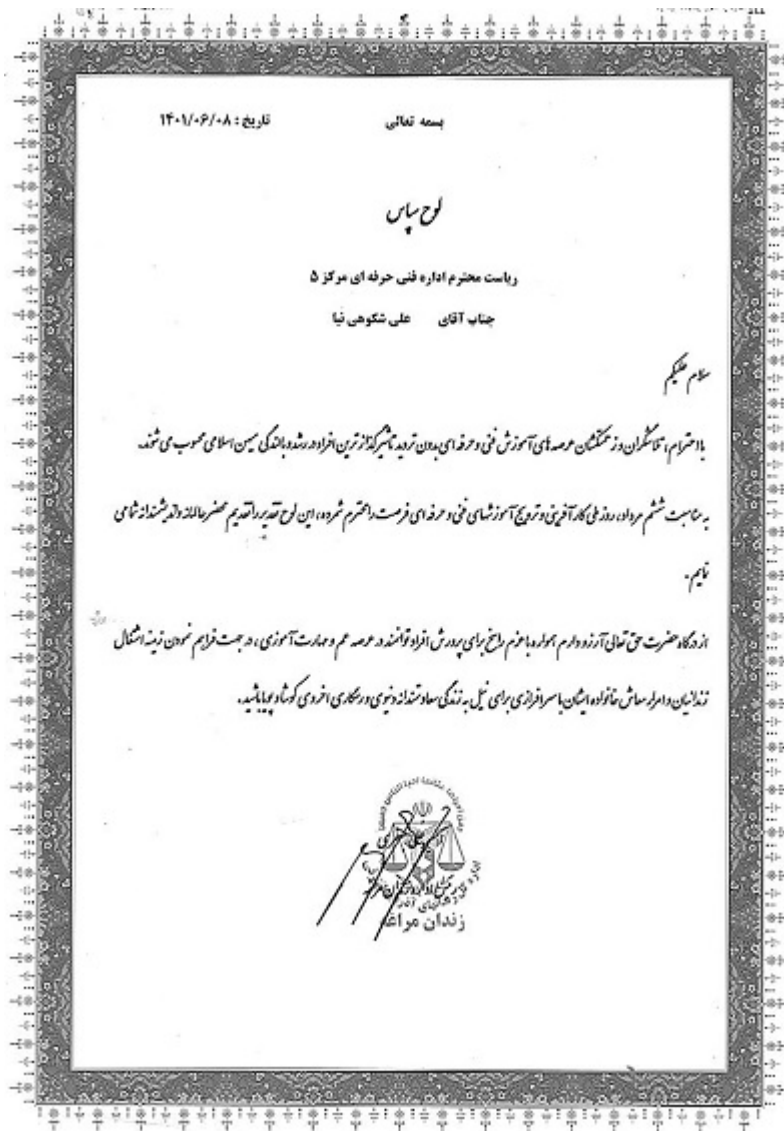 بسمه تعالی
تاریخ : ۱۴۰۱/۰۶/۰۸
لوح سپاس
ریاست محترم اداره فنی حرفه ای مرکز ۵
جناب آقای علی شکوهی نیا
سلام علیکم
با احترام، تلاشگران و زحمتکشان عرصه های آموزش فنی و حرفه ای بدون تردید تاثیرگذارترین افراد در رشد و بالندگی میهن اسلامی محسوب می شوند.
به مناسبت ششم مرداد، روز ملی کارآفرینی و ترویج آموزشهای فنی و حرفه ای فرصت را محترم شمرده، این لوح تقدیر را تقدیم محضر عالمانه و اندیشمندانه شما می
نمایم.
از درگاه حضرت حق تعالی آرزو دارم همواره با عزم راسخ برای پرورش افراد توانمند در عرصه علم و مهارت آموزی، در جهت فراهم نمودن زمینه اشتغال
زندانیان و امرار معاش خانواده ایشان با سرافرازی برای نیل به زندگی سعادتمندانه دنیوی و رستگاری اخروی کوشا و پویا باشید.
زندان مراغه